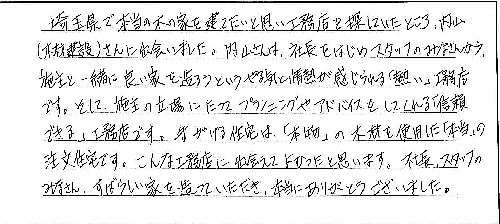 埼玉県で本当の木の家を建てたいと思い工務店を探していたところ、内山
(木材建設)さんに出会いました。内山さんは、社長をはじめスタッフのみなさんから、
施主と一緒に良い家を造ろうというやる気と情熱が感じられる「熱い」工務店
です。そして、施主の立場にたってプランニングやアドバイスをしてくれる「信頼
できる」工務店です。手がける住宅は、「本物」の木材を使用した「本当」の
注文住宅です。こんな工務店に出会えてよかったと思います。社長、スタッフの
みなさん、すばらしい家を造っていただき、本当にありがとうございました。